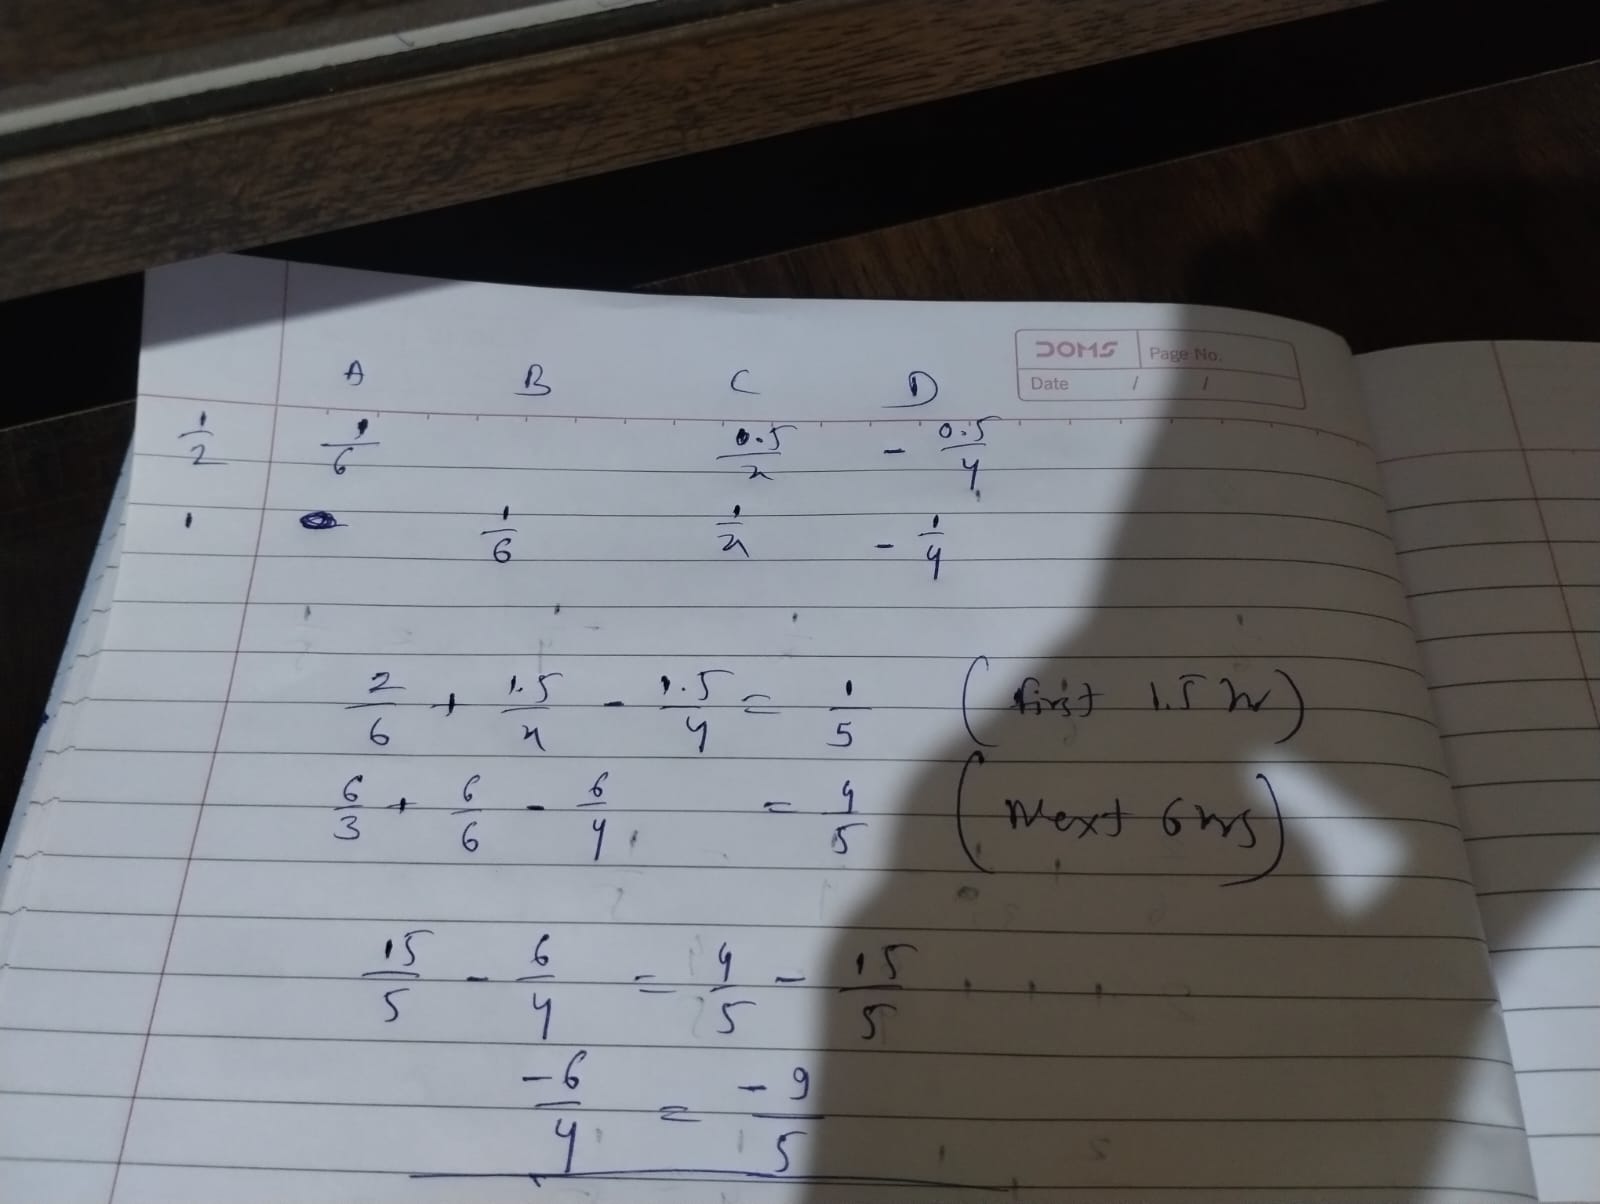 DOMS Page No.
Date / /
A B C D
1/2 1/6 0.5/x - 0.5/y
1 1/6 1/x - 1/y
2/6 + 1.5/x - 1.5/y = 1/5 (first 1.5 hr)
6/3 + 6/6 - 6/y = 4/5 (Next 6 hrs)
15/5 - 6/y = 4/5 - 15/5
-6/y = -9/5